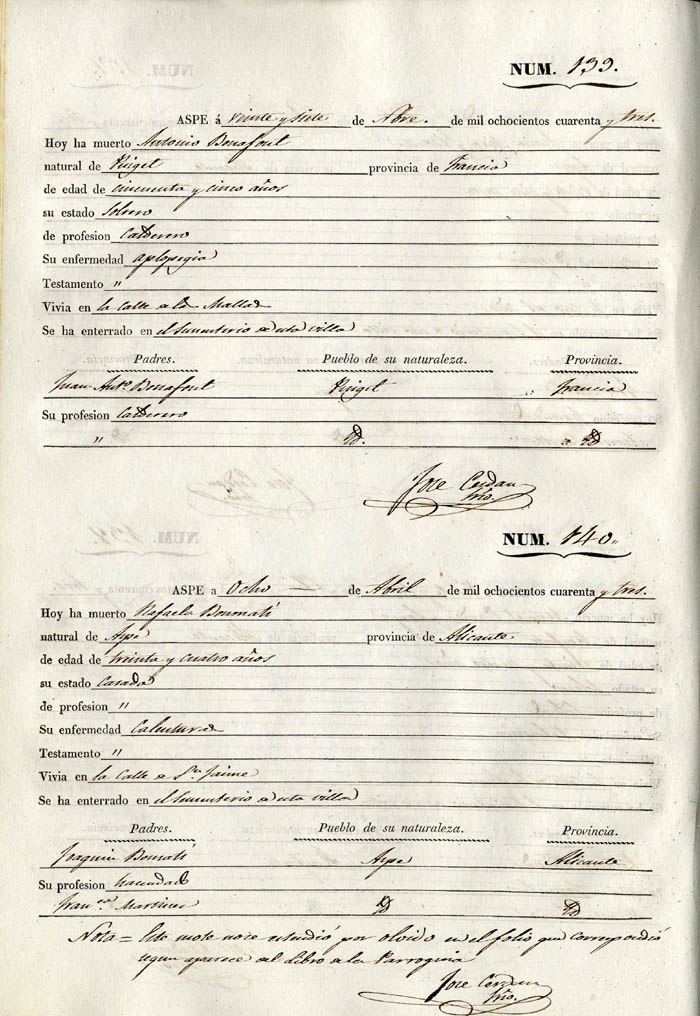 NUM. 139.
ASPE á veinte y siete de Nbre. de mil ochocientos cuarenta y tres.
Hoy ha muerto Antonio Bonafont
natural de Puiget provincia de Francia
de edad de cincuenta y cinco años
su estado Soltero
de profesion Calderero
Su enfermedad aplopegia
Testamento "
Vivia en la Calle de la
Se ha enterrado en el Sementerio de esta villa
Padres. Pueblo de su naturaleza. Provincia.
Juan Anto. Bonafont Puiget Francia
Su profesion Calderero
" Yd. Yd
Jose Cerdan
NUM. 140.
ASPE a Ocho — de Abril de mil ochocientos cuarenta y tres.
Hoy ha muerto Rafaela Bonmati
natural de Aspe provincia de Alicante
de edad de treinta y cuatro años
su estado Casada
de profesion "
Su enfermedad Calentura
Testamento "
Vivia en la Calle de Sn. Jaime
Se ha enterrado en el Sementerio de esta villa
Padres. Pueblo de su naturaleza. Provincia.
Joaquin Bonmati Aspe Alicante
Su profesion hacendado
Franca. Martinez Yd Yd
Nota = Este mote no se estendió por olvido en el folio que correspondió
segun aparece del Libro de la Parroquia
Jose Cerdan